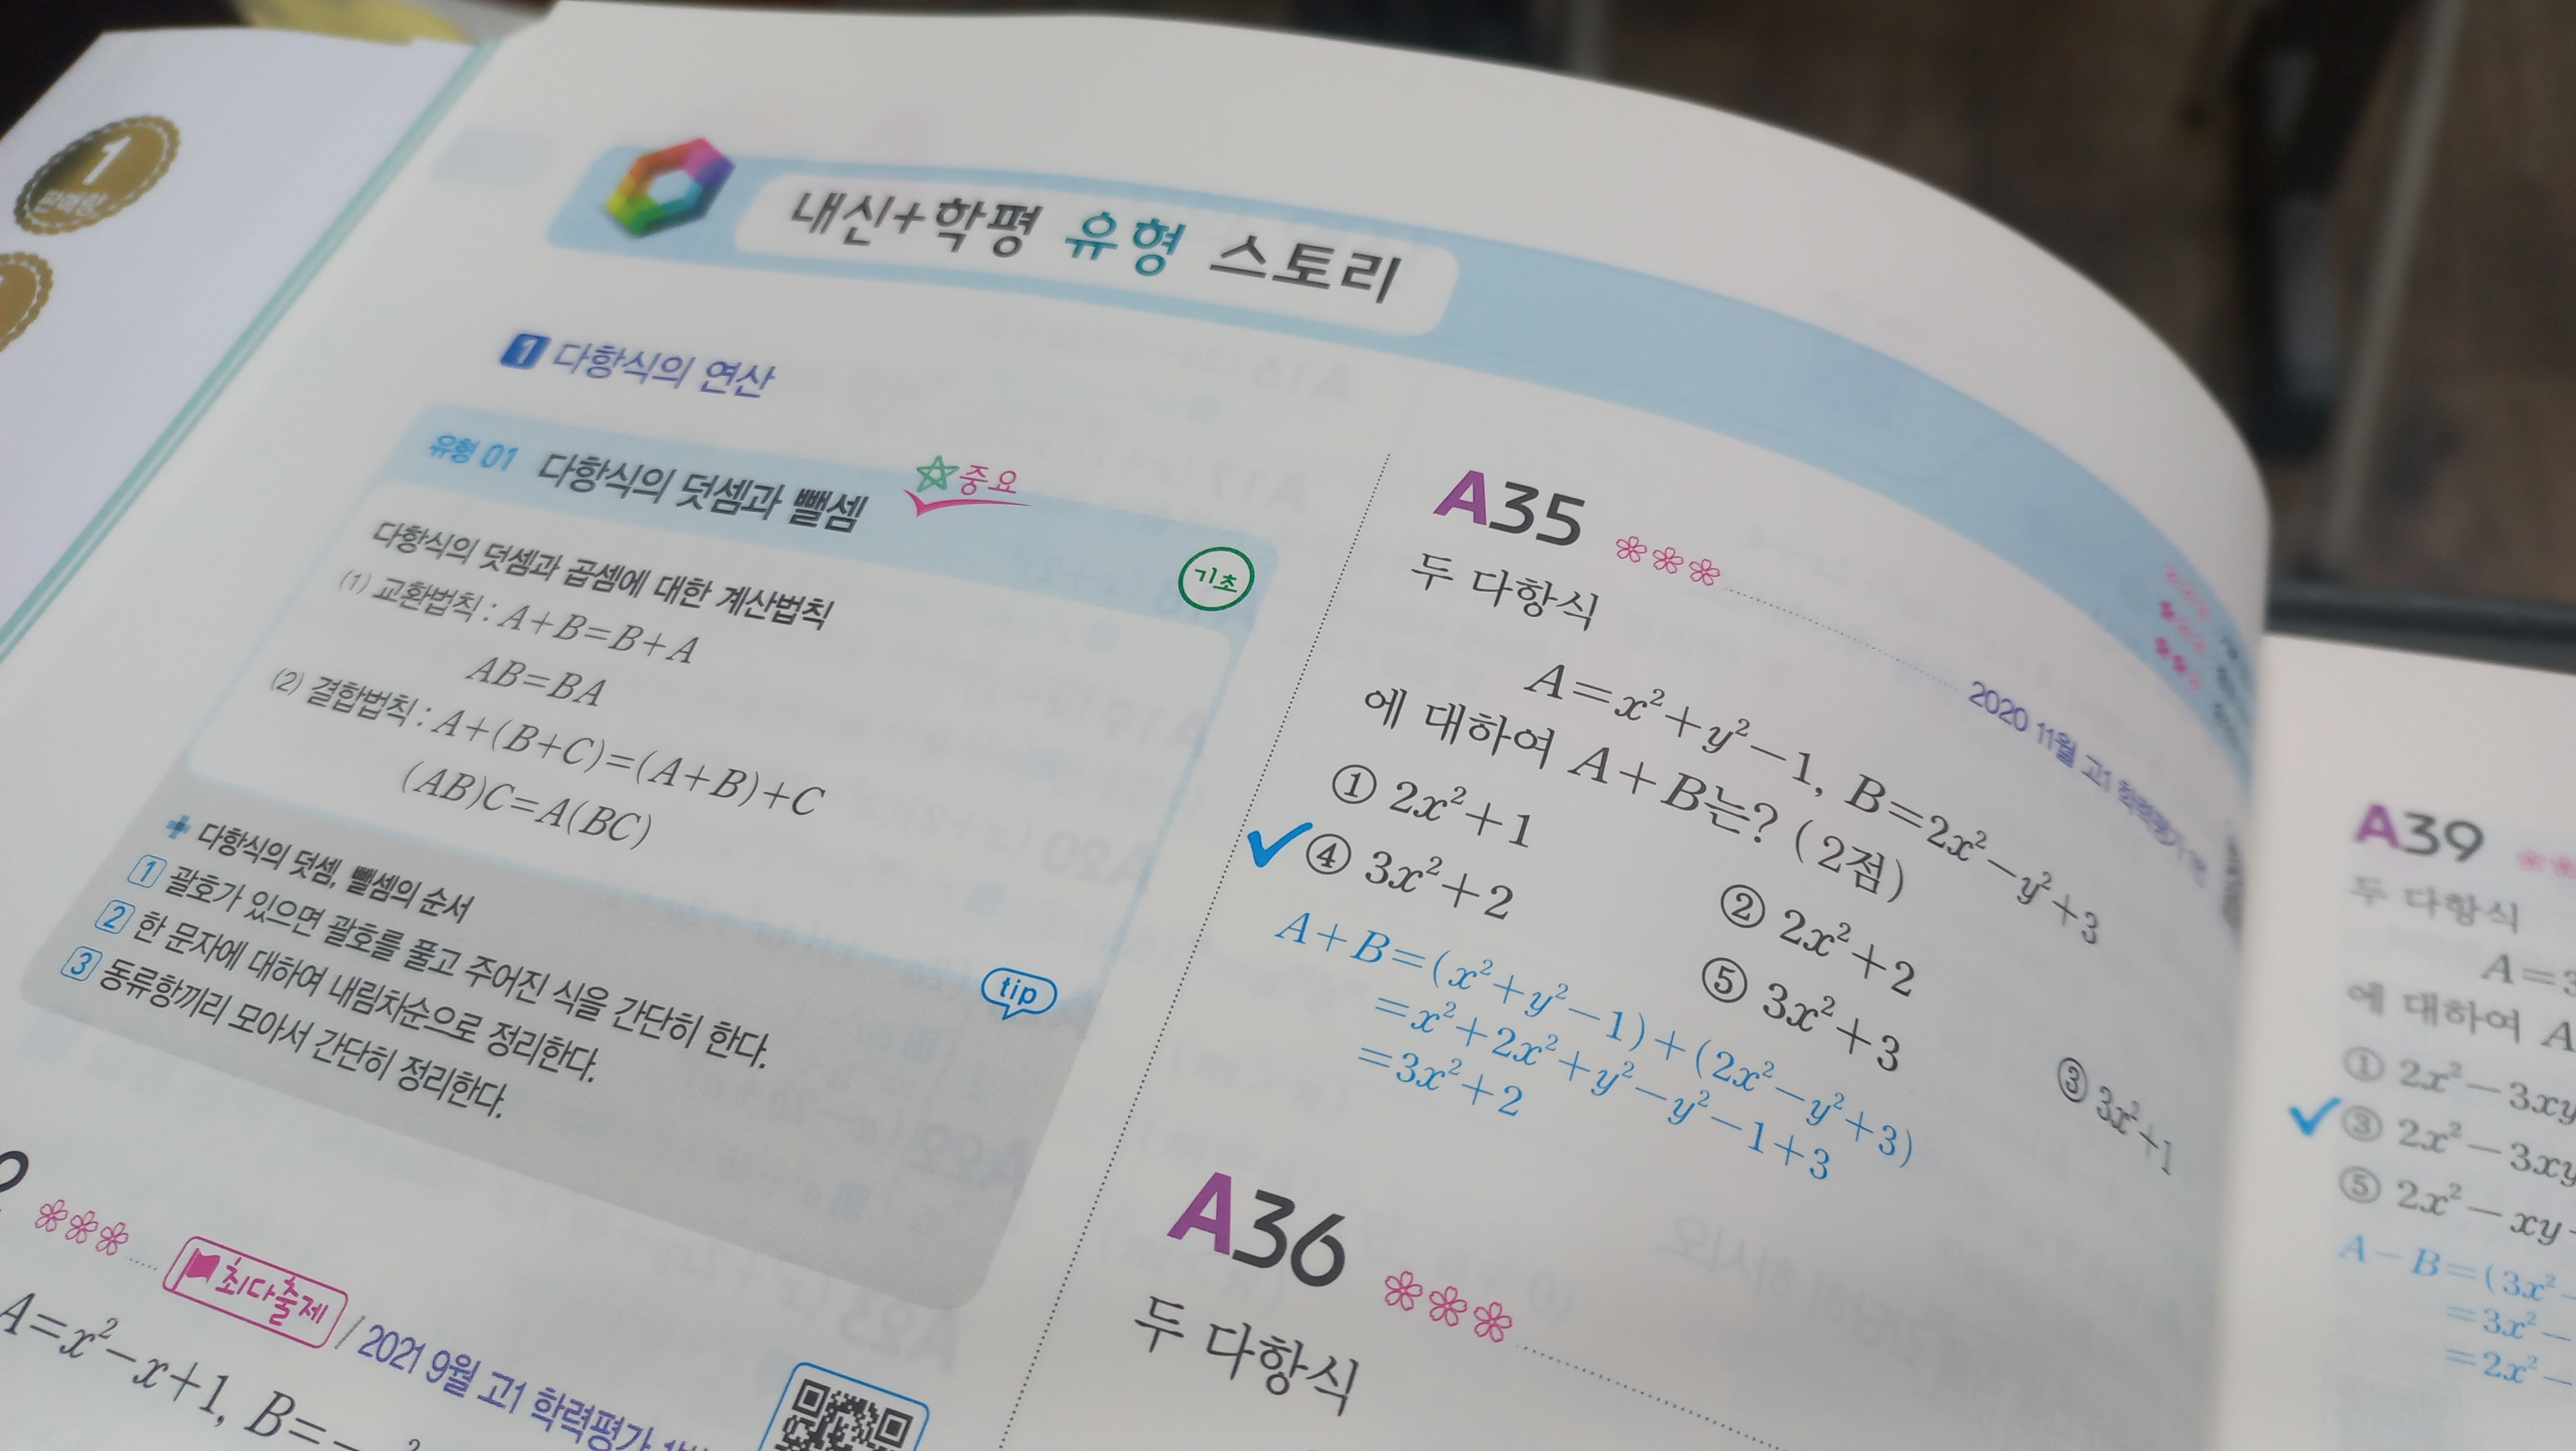 1
판매량
내신+학평 유형 스토리
1 다항식의 연산
유형 01 다항식의 덧셈과 뺄셈 중요
기초
다항식의 덧셈과 곱셈에 대한 계산법칙
(1) 교환법칙 : A+B=B+A
AB=BA
(2) 결합법칙 : A+(B+C)=(A+B)+C
(AB)C=A(BC)
tip
+ 다항식의 덧셈, 뺄셈의 순서
1 괄호가 있으면 괄호를 풀고 주어진 식을 간단히 한다.
2 한 문자에 대하여 내림차순으로 정리한다.
3 동류항끼리 모아서 간단히 정리한다.
최다출제 / 2021 9월 고1 학력평가
A=x²-x+1, B=-
A35
2020 11월 고1 학력평가
두 다항식
A=x²+y²-1, B=2x²-y²+3
에 대하여 A+B는? (2점)
① 2x²+1
② 2x²+2
③ 3x²+1
✓④ 3x²+2
⑤ 3x²+3
A+B=(x²+y²-1)+(2x²-y²+3)
=x²+2x²+y²-y²-1+3
=3x²+2
A36
두 다항식
A39
두 다항식
A=3
에 대하여 A
① 2x²-3xy
✓③ 2x²-3xy
⑤ 2x²-xy
A-B=(3x²
=3x²-
=2x²-